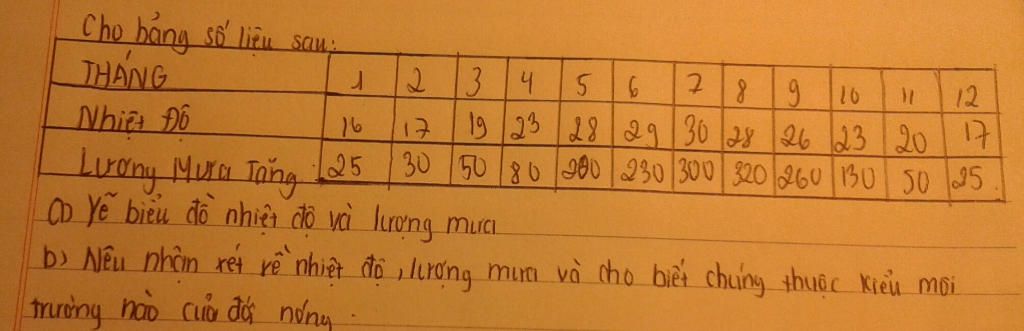 Cho bảng số liệu sau:
THÁNG 1 2 3 4 5 6 7 8 9 10 11 12
Nhiệt Độ 16 17 19 23 28 29 30 28 26 23 20 17
Lượng Mưa Tăng 25 30 50 80 200 230 300 320 260 130 50 25
a) Vẽ biểu đồ nhiệt độ và lượng mưa
b) Nêu nhận xét về nhiệt độ, lượng mưa và cho biết chúng thuộc kiểu môi
trường nào của đới nóng.